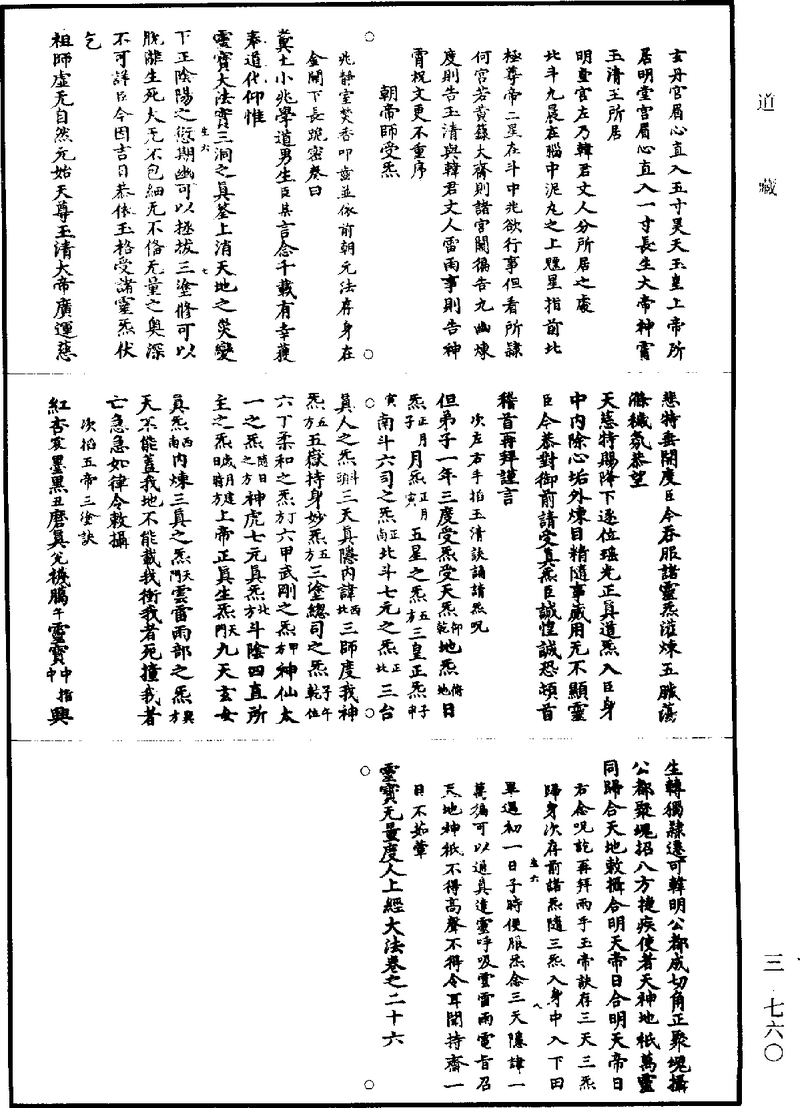 道藏
玄丹宮眉心直入五寸昊天玉皇上帝所
居明堂宮眉心直入一寸長生大帝神霄
玉清王所居
明堂宮左乃韓君丈人分所居之處
北斗九晨在腦中泥丸之上魁星指前北
極尊帝二星在斗中兆欲行事但看所隸
何宮若黃籙大齋則諸宮闕徧告九幽煉
度則告玉清與韓君丈人雷雨事則告神
霄祝文更不重序
朝帝師受炁
兆靜室焚香叩齒並依前朝元法存身在
金闕下長跪密奏曰
糞土小兆學道男生臣某言念千載有幸獲
奉道代仰惟
靈寶大法實三洞之眞筌上消天地之災變
下正陰陽之愆期幽可以拯拔三塗修可以
脫離生死大无不包細无不俻无量之奧深
不可詳臣今因吉日恭依玉格受諸靈炁伏
乞
祖師虛无自然元始天尊玉清大帝廣運慈
悲特垂開度臣今吞服諸靈炁灌煉五臟蕩
滌穢氛恭望
天慈特賜降下逐位瑤光正眞道炁入臣身
中內除心垢外煉目精隨事感用无不顯靈
臣今恭對御前請受眞炁臣誠惶誠恐頓首
稽首再拜謹言
次左右手掐玉清訣誦請炁呪
但弟子一年三度受炁受天炁仰乾地炁俯地日
炁正月子月炁正月寅五星之炁五方三皇正炁子申
寅南斗六司之炁正南北斗七元之炁正北三台
眞人之炁斗頭三天眞隱內諱西北三師度我神
炁五方五嶽持身妙炁五方三塗總司之炁子午乾位
六丁柔和之炁丁方六甲武剛之炁甲方神仙太
一之炁隨日之方神虎七元眞炁北方斗陰四直所
主之炁歲月建日時方上帝正眞生炁天門九天玄女
眞炁西南內煉三眞之炁天門雲雷雨部之炁巽方
天不能蓋我地不能載我衝我者死撞我者
亡急急如律令敕攝
次掐五帝三塗訣
紅杏亥墨黑丑磨眞允機騰午靈寶中指中興
生轉獨隸邊可韓明公都咸切角正聚塊攝
公都聚塊招八方捷疾使者天神地祇萬靈
同歸合天地敕攝合明天帝日合明天帝日
右念呪訖再拜兩手玉帝訣存三天三炁
歸身次存前諸炁隨三炁入身中入下田
畢遇初一日子時便服炁念三天隱諱一
萬徧可以通眞達靈呼吸雲雷雨電旨召
天地神祇不得高聲不得令耳聞持齋一
日不茹葷
靈寶无量度人上經大法卷之二十六
三·七六〇